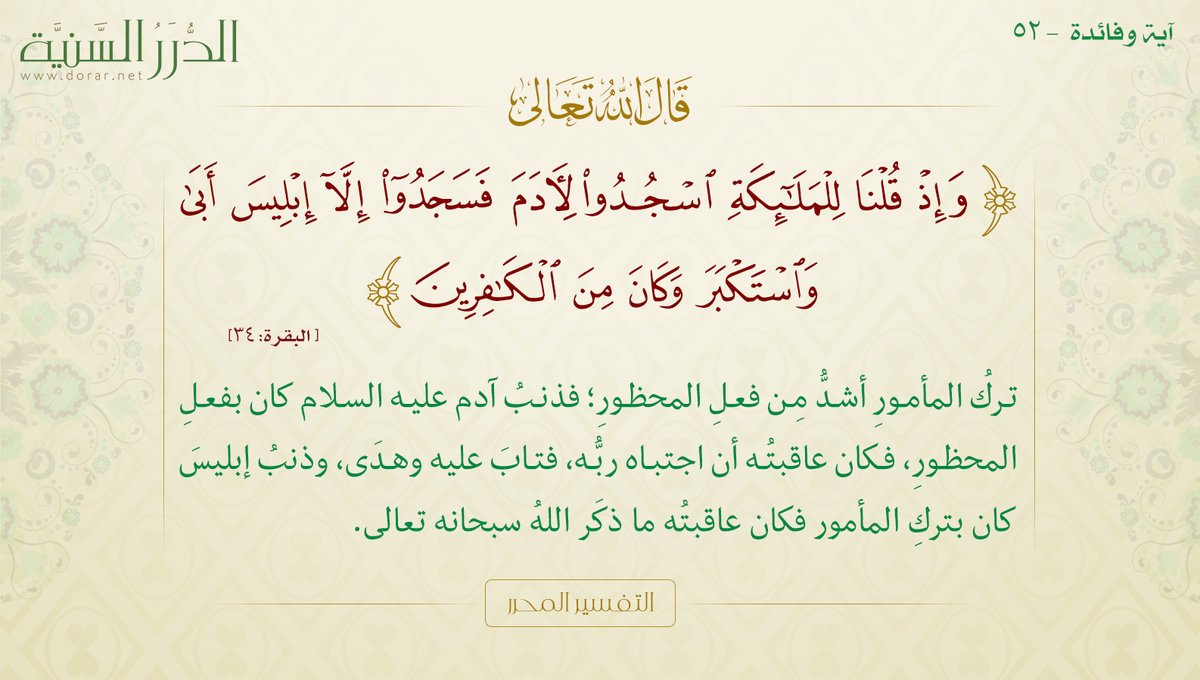 آية وفائدة - ٥٢
الدُّرَرُ السَّنِيَّة
www.dorar.net
قَالَ اللهُ تَعَالَى
﴿ وَإِذْ قُلْنَا لِلْمَلَٰٓئِكَةِ ٱسْجُدُوا۟ لِأَدَمَ فَسَجَدُوٓا۟ إِلَّآ إِبْلِيسَ أَبَىٰ
وَٱسْتَكْبَرَ وَكَانَ مِنَ ٱلْكَٰفِرِينَ ﴾
[البقرة: ٣٤]
تركُ المأمورِ أشدُّ مِن فعلِ المحظورِ؛ فذنبُ آدم عليه السلام كان بفعلِ
المحظورِ، فكان عاقبتُه أن اجتباه ربُّه، فتابَ عليه وهدَى، وذنبُ إبليسَ
كان بتركِ المأمور فكان عاقبتُه ما ذكَر اللهُ سبحانه تعالى.
التفسير المحرر